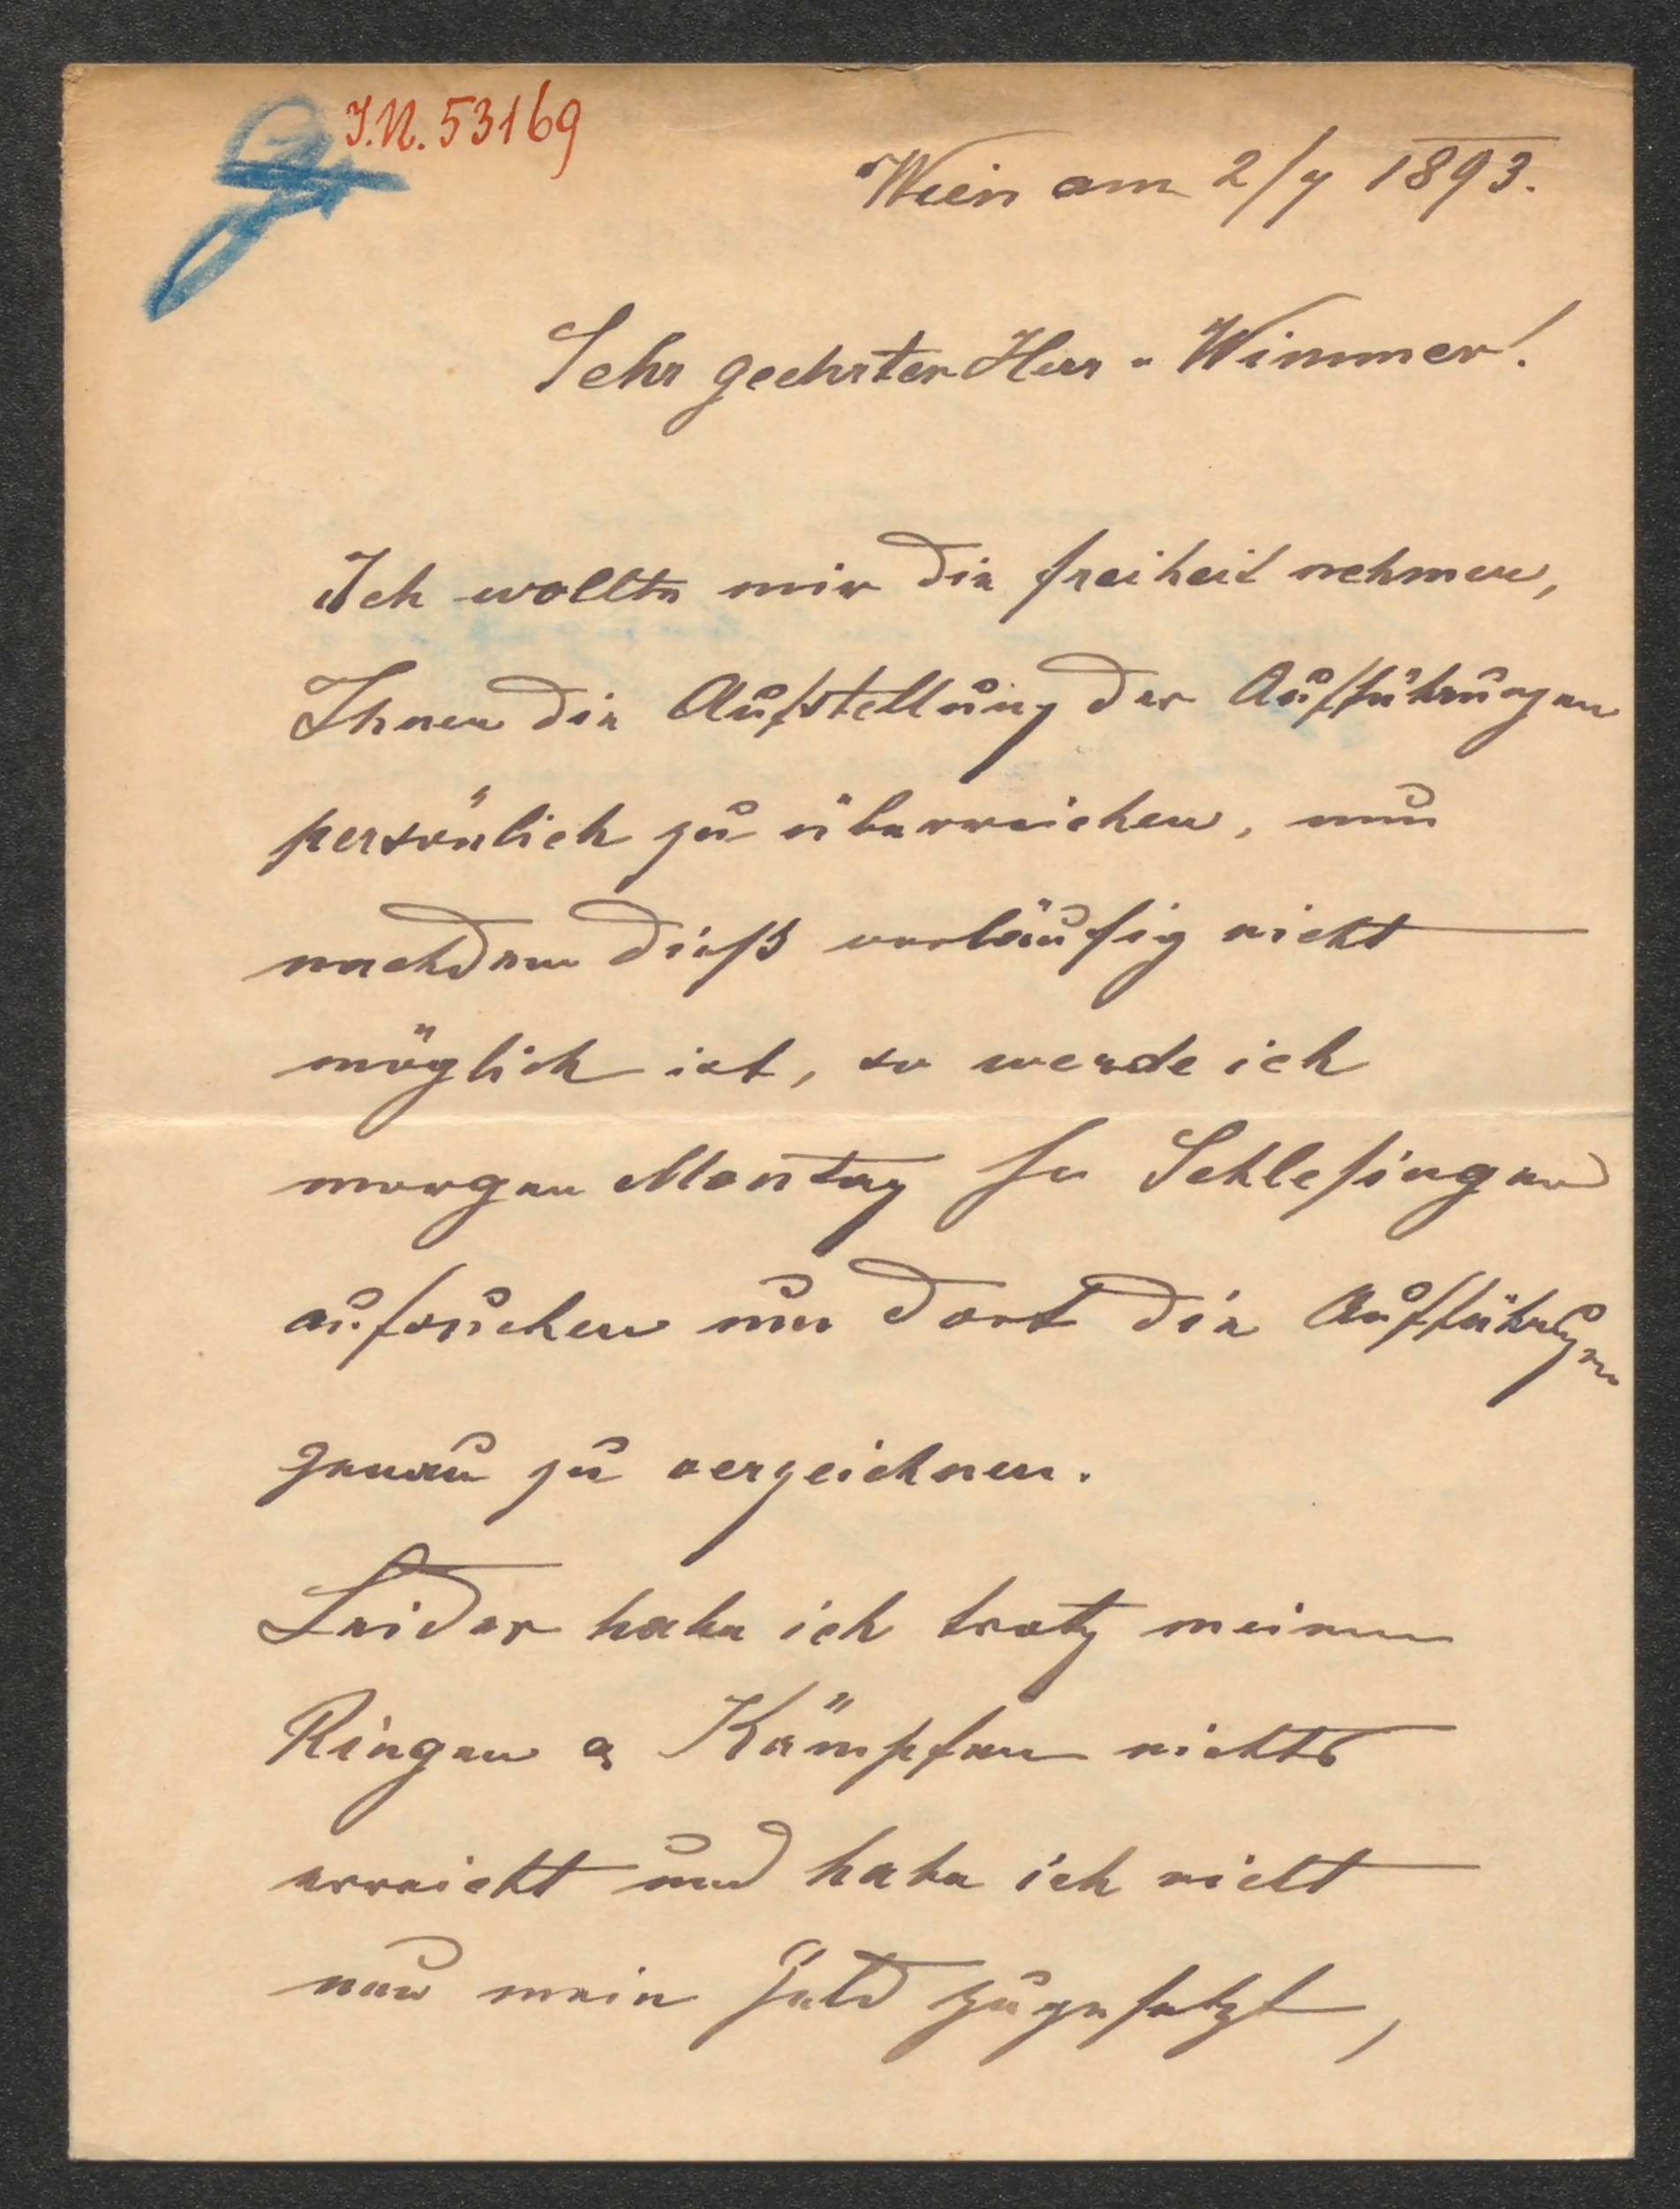 J.N. 53169
Wien am 2/7 1893.
Sehr geehrter Herr v Wimmer!
Ich wollte mir die Freiheit nehmen,
Ihnen die Aufstellung der Aufführungen
persönlich zu überreichen, nun
nachdem dieß vorläufig nicht
möglich ist, so werde ich
morgen Montag Schlesinger
aufsuchen um dort die Aufführungen
genau zu verzeichnen.
Leider habe ich trotz meinem
Ringen & Kämpfen nichts
erreicht und habe ich nicht
nur mein Geld zugesetzt,